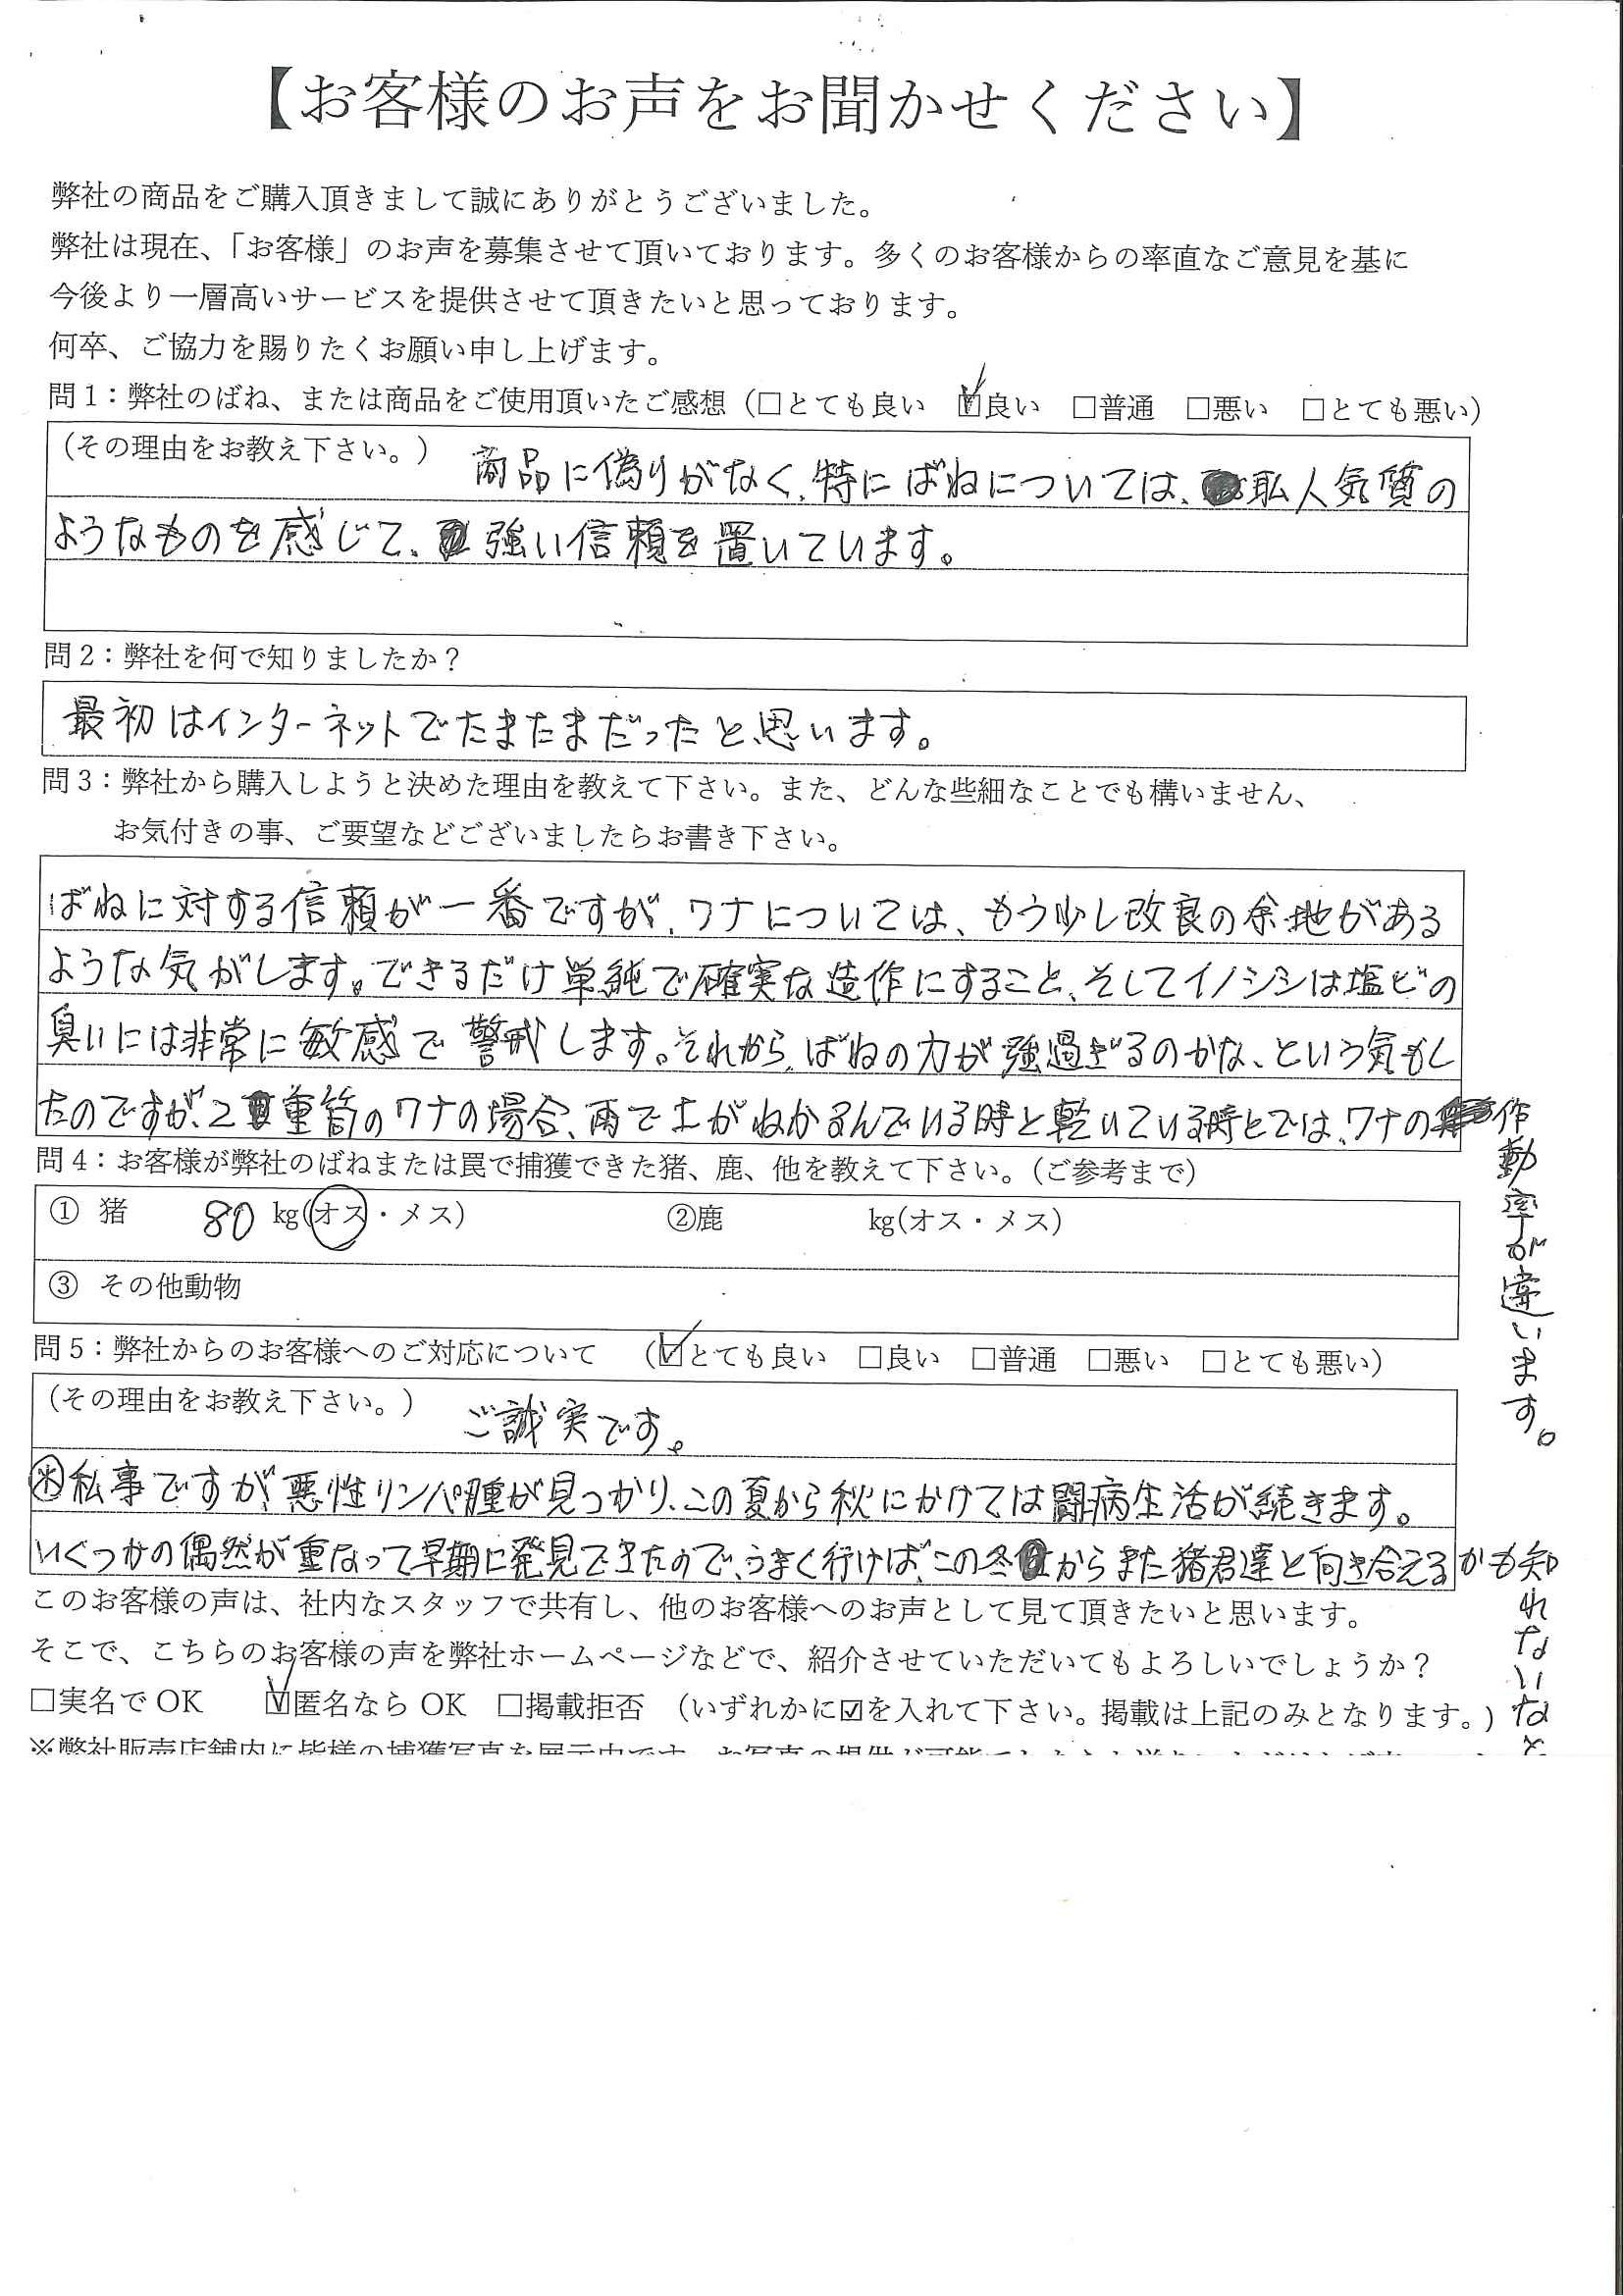 【お客様のお声をお聞かせください】
弊社の商品をご購入頂きまして誠にありがとうございました。
弊社は現在、「お客様」のお声を募集させて頂いております。多くのお客様からの率直なご意見を基に
今後より一層高いサービスを提供させて頂きたいと思っております。
何卒、ご協力を賜りたくお願い申し上げます。
問1：弊社のばね、または商品をご使用頂いたご感想（□とても良い ☑良い □普通 □悪い □とても悪い）
（その理由をお教え下さい。） 商品に偽りがなく、特にばねについては、人気質の
ようなものを感じて、強い信頼を置いています。
問2：弊社を何で知りましたか？
最初はインターネットでたまたまだったと思います。
問3：弊社から購入しようと決めた理由を教えて下さい。また、どんな些細なことでも構いません、
お気付きの事、ご要望などございましたらお書き下さい。
ばねに対する信頼が一番ですが、ワナについては、もう少し改良の余地がある
ような気がします。できるだけ単純で確実な造作にすること、そしてイノシシは塩ビの
臭いには非常に敏感で警戒します。それから、ばねの力が強過ぎるのかな、という気もし
たのですが、2重筒のワナの場合、雨で土がぬかるんでいる時と乾いている時とでは、ワナの作
動率が違います。
問4：お客様が弊社のばねまたは罠で捕獲できた猪、鹿、他を教えて下さい。（ご参考まで）
① 猪 80 kg(オス・メス） ②鹿 kg(オス・メス）
③ その他動物
問5：弊社からのお客様へのご対応について （☑とても良い □良い □普通 □悪い □とても悪い）
（その理由をお教え下さい。） ご誠実です。
私事ですが、悪性リンパ腫が見つかり、この夏から秋にかけては闘病生活が続きます。
いくつかの偶然が重なって早期に発見できたので、うまく行けば、この冬からまた猪君達と向き合えるかも知
れないなと
このお客様の声は、社内なスタッフで共有し、他のお客様へのお声として見て頂きたいと思います。
そこで、こちらのお客様の声を弊社ホームページなどで、紹介させていただいてもよろしいでしょうか？
□実名でOK ☑匿名ならOK □掲載拒否 （いずれかに☑を入れて下さい。掲載は上記のみとなります。）